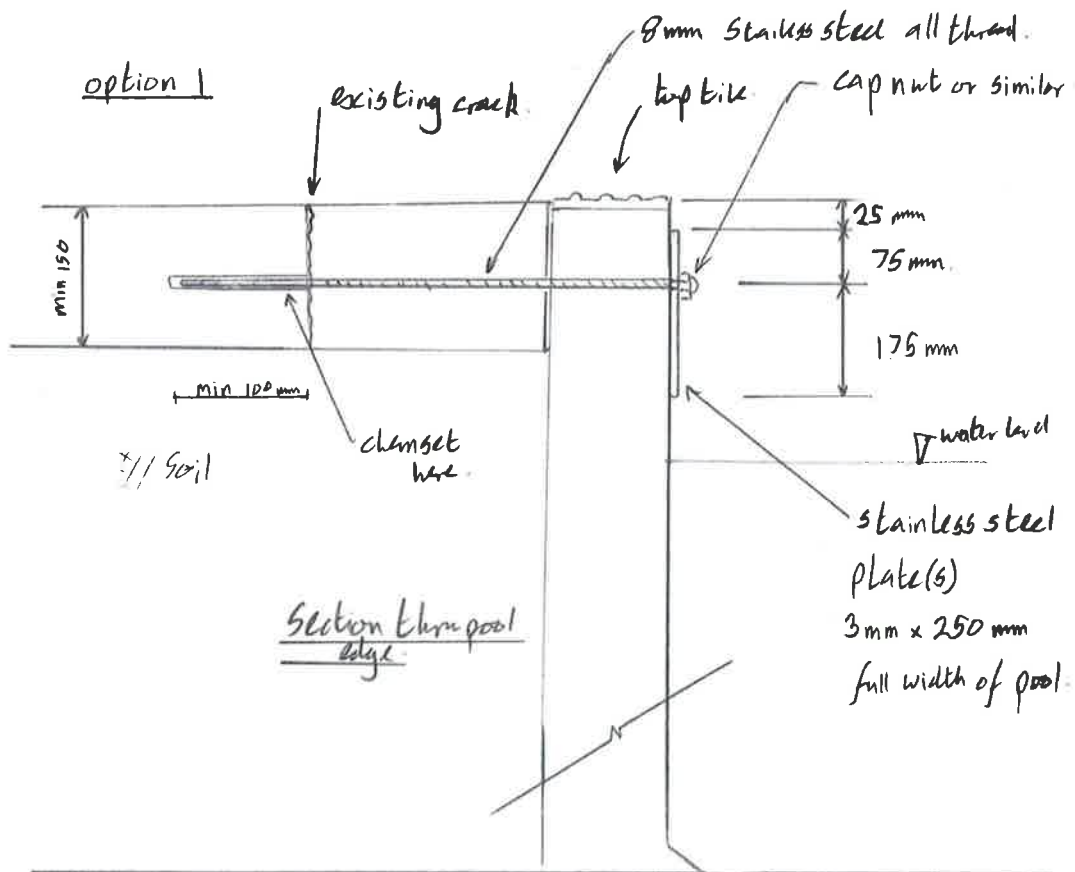 option 1
existing crack.
8mm Stainless steel all thread.
top tile
cap nut or similar
25 mm
75mm.
175 mm
min 150
min 100mm
chemset
here.
Soil
water level
stainless steel
plate(s)
3mm x 250 mm
full width of pool.
Section thru pool
edge.
N